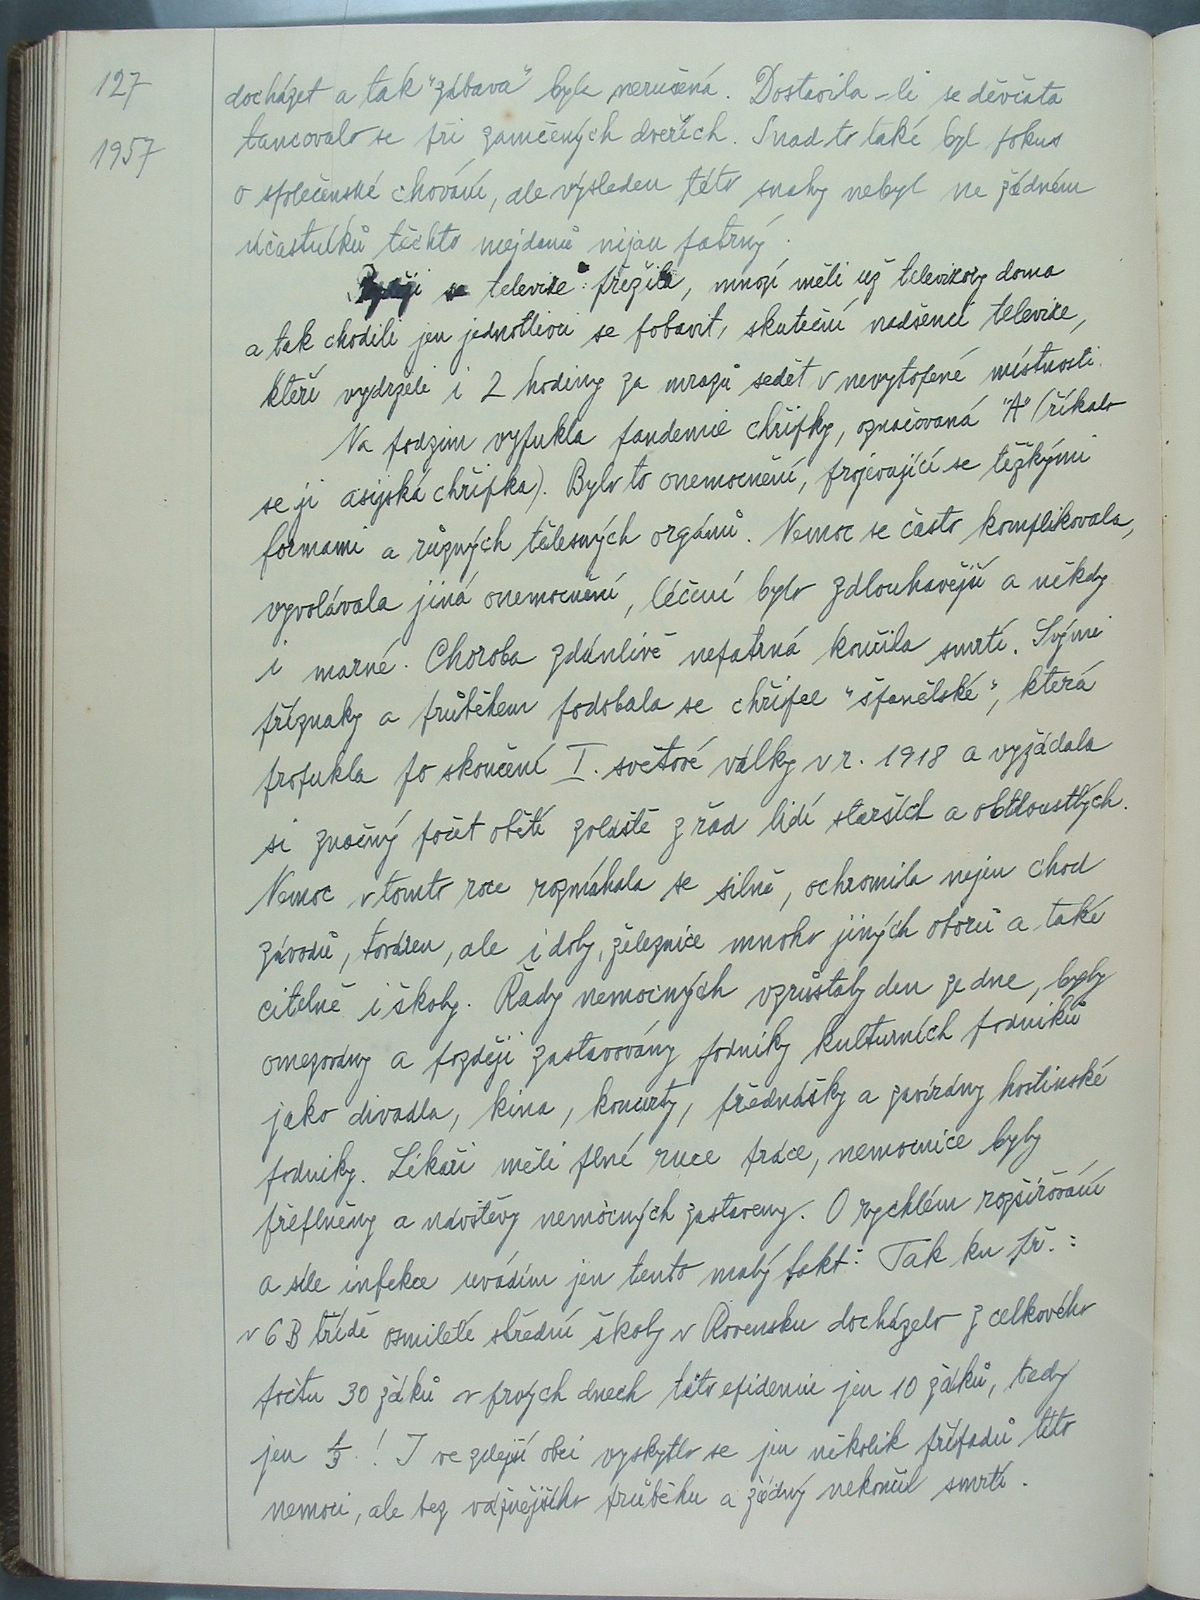 127
1957
docházet a tak "zábava" byla nerušená. Dostavila-li se děvčata
tancovalo se při zamčených dveřích. Snad to také byl pokus
o společenské chování, ale výsledek této snahy nebyl na žádném
účastníků těchto mejdanů nijak patrný.
Později se televise přežila, mnozí měli už televizory doma
a tak chodili jen jednotlivci se pobavit, skuteční nadšenci televise,
kteří vydrželi i 2 hodiny za mrazů sedět v nevytopené místnosti.
Na podzim vypukla pandemie chřipky, označovaná "A" (říkalo
se jí asijská chřipka). Bylo to onemocnění, projevující se těžkými
formami a různých tělesných orgánů. Nemoc se často komplikovala,
vyvolávala jiná onemocnění, léčení bylo zdlouhavější a někdy
i marné. Choroba zdánlivě nepatrná končila smrtí. Svými
příznaky a průběhem podobala se chřipce "španělské", která
propukla po skončení I. světové války v r. 1918 a vyžádala
si značný počet obětí zvláště z řad lidí starších a obtloustlých.
Nemoc v tomto roce rozmáhala se silně, ochromila nejen chod
závodů, továren, ale i doly, železnice mnoho jiných oborů a také
citelně i školy. Řady nemocných vzrůstaly den ze dne, byly
omezovány a později zastavovány podniky kulturních podniků
jako divadla, kina, koncerty, přednášky a zavírány hostinské
podniky. Lékaři měli plné ruce práce, nemocnice byly
přeplněny a návštěvy nemocných zastaveny. O rychlém rozšiřování
a síle infekce uvádím jen tento malý fakt: Tak ku př.:
v 6 B třídě osmileté střední školy v Rovensku docházelo z celkového
počtu 30 žáků v prvých dnech této epidemie jen 10 žáků, tedy
jen 1/3 ! I ve zdejší obci vyskytlo se jen několik případů této
nemoci, ale bez vážnějšího průběhu a žádný nekončil smrtí.